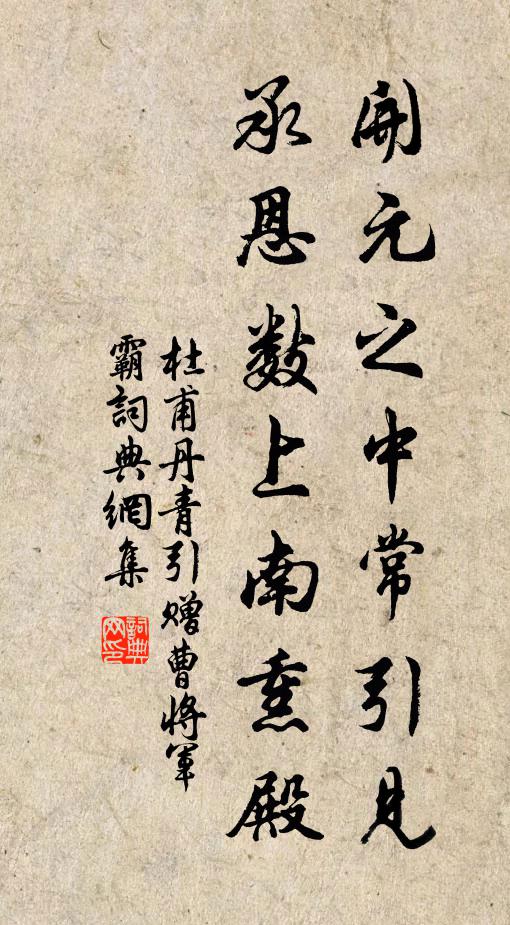 開元之中常引見
承恩數上南熏殿
杜甫丹青引贈曹將軍
霸詞典網集
詞典網印